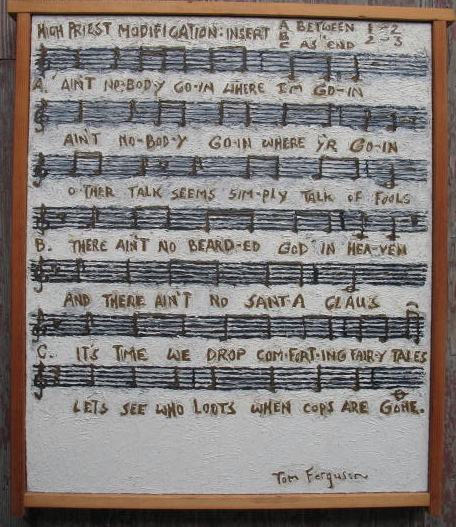 HIGH PRIEST MODIFICATION: INSERT A BETWEEN 1 - 2
B " 2 - 3
C AS END
A. AIN'T NO-BODY GO-IN WHERE I'M GO-IN
AIN'T NO-BOD-Y GO-IN WHERE Y'R GO-IN
O-THER TALK SEEMS SIM-PLY TALK OF FOOLS
B. THERE AIN'T NO BEARD-ED GOD IN HEA-VEN
AND THERE AIN'T NO SANT-A CLAUS
C. IT'S TIME WE DROP COM-FORT-ING FAIR-Y TALES
LETS SEE WHO LOOTS WHEN COPS ARE GONE.
Tom Ferguson